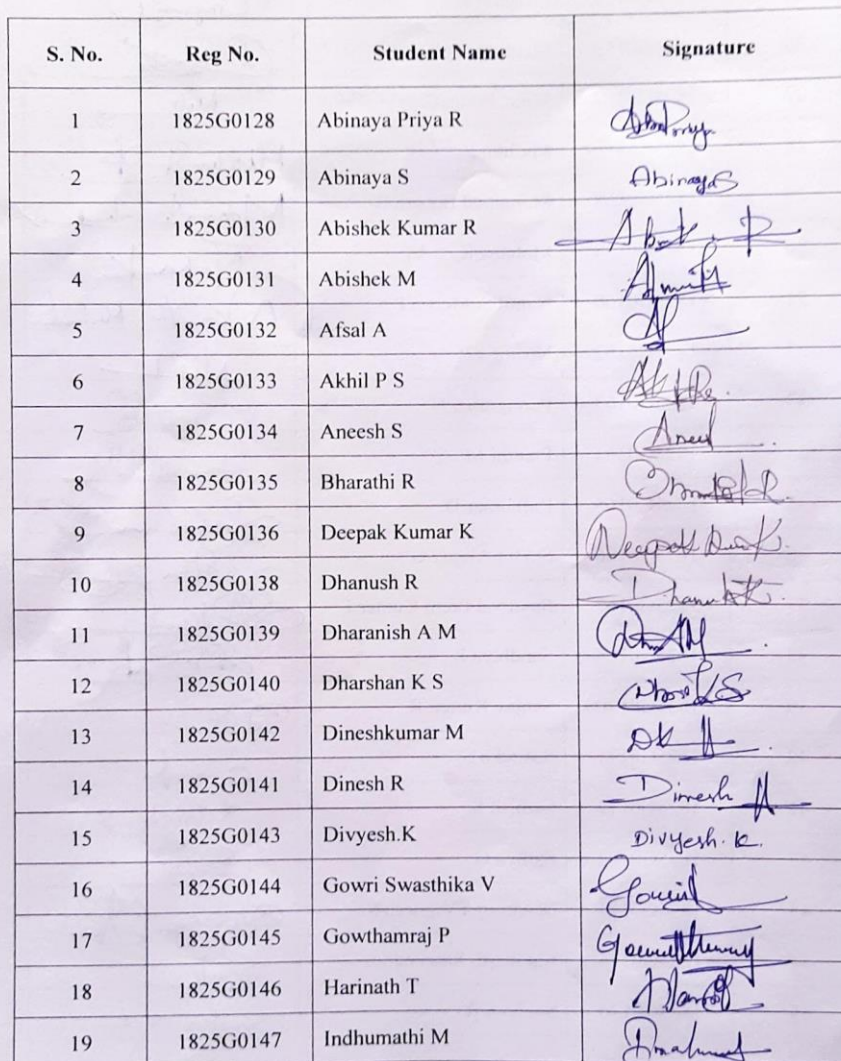 S. No. Reg No. Student Name Signature
1 1825G0128 Abinaya Priya R
2 1825G0129 Abinaya S Abinaya S
3 1825G0130 Abishek Kumar R
4 1825G0131 Abishek M
5 1825G0132 Afsal A
6 1825G0133 Akhil P S
7 1825G0134 Aneesh S
8 1825G0135 Bharathi R
9 1825G0136 Deepak Kumar K
10 1825G0138 Dhanush R
11 1825G0139 Dharanish A M
12 1825G0140 Dharshan K S
13 1825G0142 Dineshkumar M
14 1825G0141 Dinesh R Dinesh
15 1825G0143 Divyesh.K Divyesh. K.
16 1825G0144 Gowri Swasthika V
17 1825G0145 Gowthamraj P
18 1825G0146 Harinath T
19 1825G0147 Indhumathi M